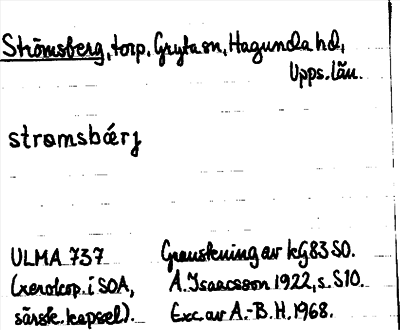 Strömsberg, torp. Gryta sn, Hagunda hd,
Upps. län.
strømsbǽrj
ULMA 737
(xerokop. i SOA,
särsk. kapsel).
Granskning av kG83 SO.
A. Isaacsson 1922, s. S10.
Exc. av A.-B. H. 1968.